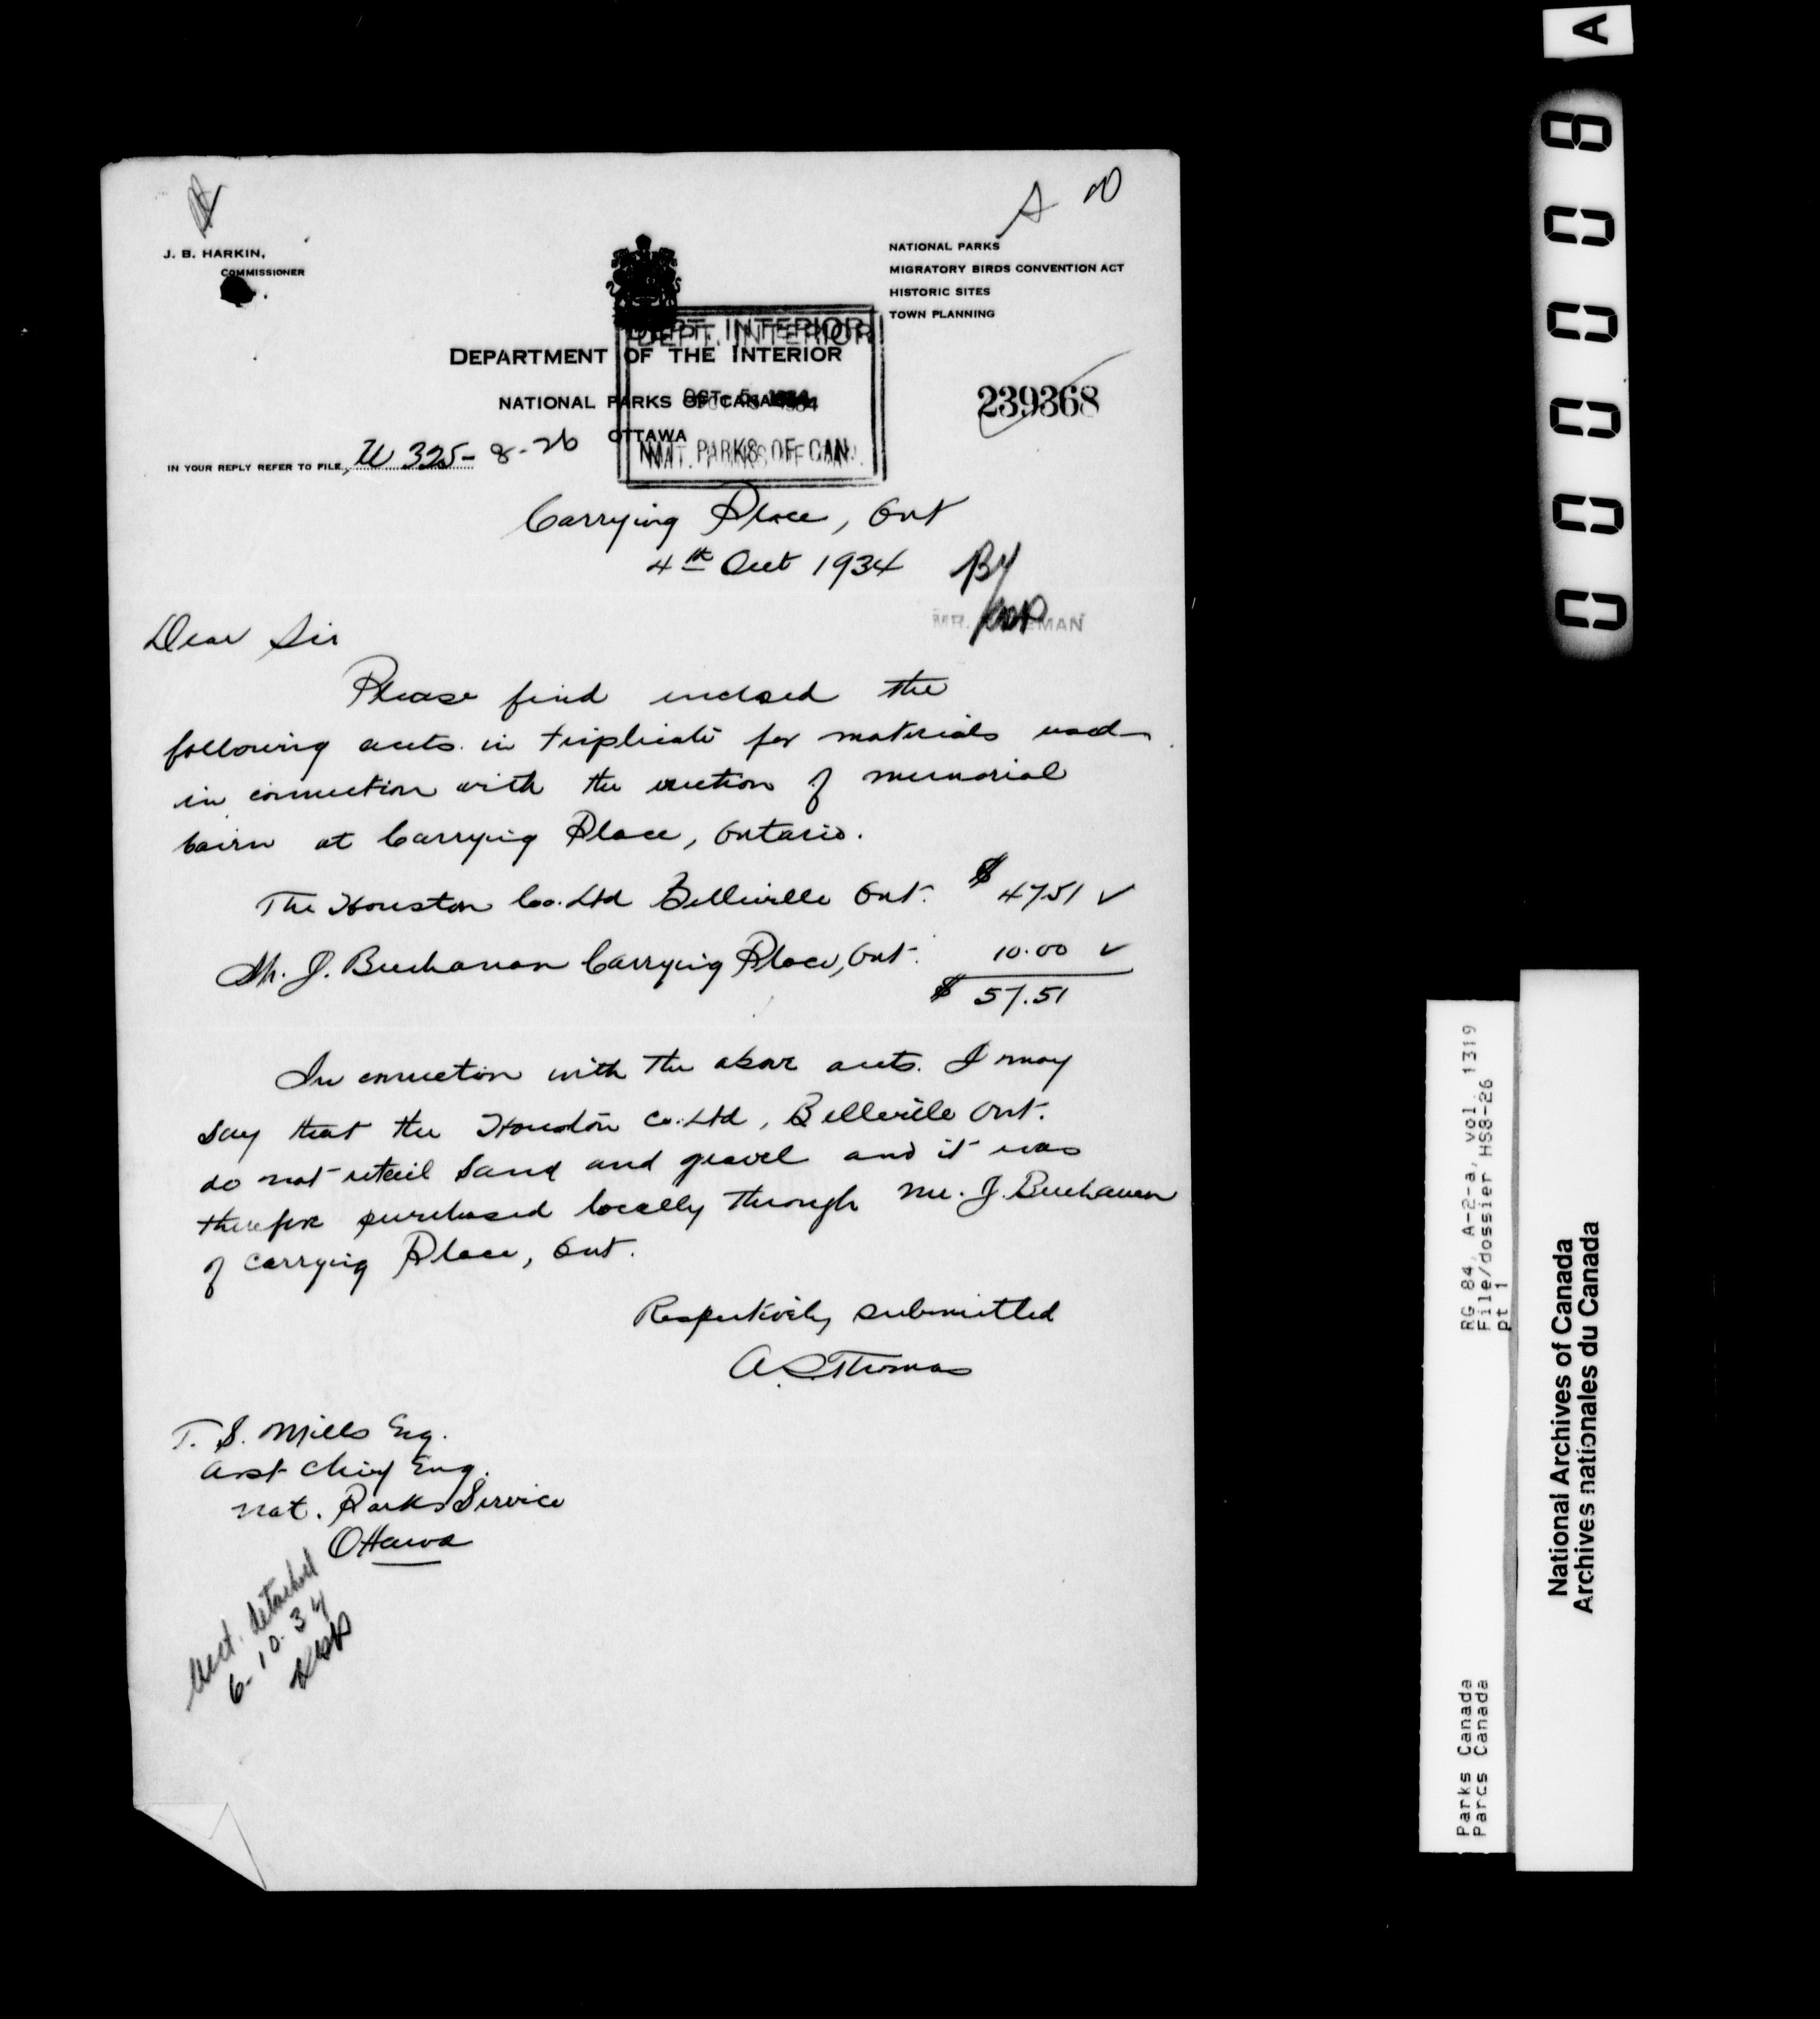 A
J. B. HARKIN,
COMMISSIONER
NATIONAL PARKS
MIGRATORY BIRDS CONVENTION ACT
HISTORIC SITES
TOWN PLANNING
DEPT. INTERIOR
DEPARTMENT OF THE INTERIOR
NATIONAL PARKS OF CANADA
OCT 5 1934
239368
OTTAWA
NAT. PARKS OF CAN.
IN YOUR REPLY REFER TO FILE U 325-8-26
Carrying Place, Ont
4th Oct 1934
MR.
Dear Sir
Please find enclosed the
following accts. in triplicate for materials used
in connection with the erection of memorial
Cairn at Carrying Place, Ontario.
The Houston Co. Ltd Belleville Ont. $ 47.51 ✓
Mr. J. Buchanan Carrying Place, Ont. 10.00 ✓
$ 57.51
In connection with the above accts. I may
say that the Houston Co. Ltd, Belleville Ont.
do not retail sand and gravel and it was
therefore purchased locally through Mr. J. Buchanan
of Carrying Place, Ont.
Respectively submitted
A. S. Thomas
T. S. Mills Esq.
Asst Chief Eng.
Nat. Parks Service
Ottawa
Acct. detached
6-10-34
000008
A
RG 84, A-2-a, vol. 1319
File/dossier HS8-26
pt 1
Parks Canada
Parcs Canada
National Archives of Canada
Archives nationales du Canada